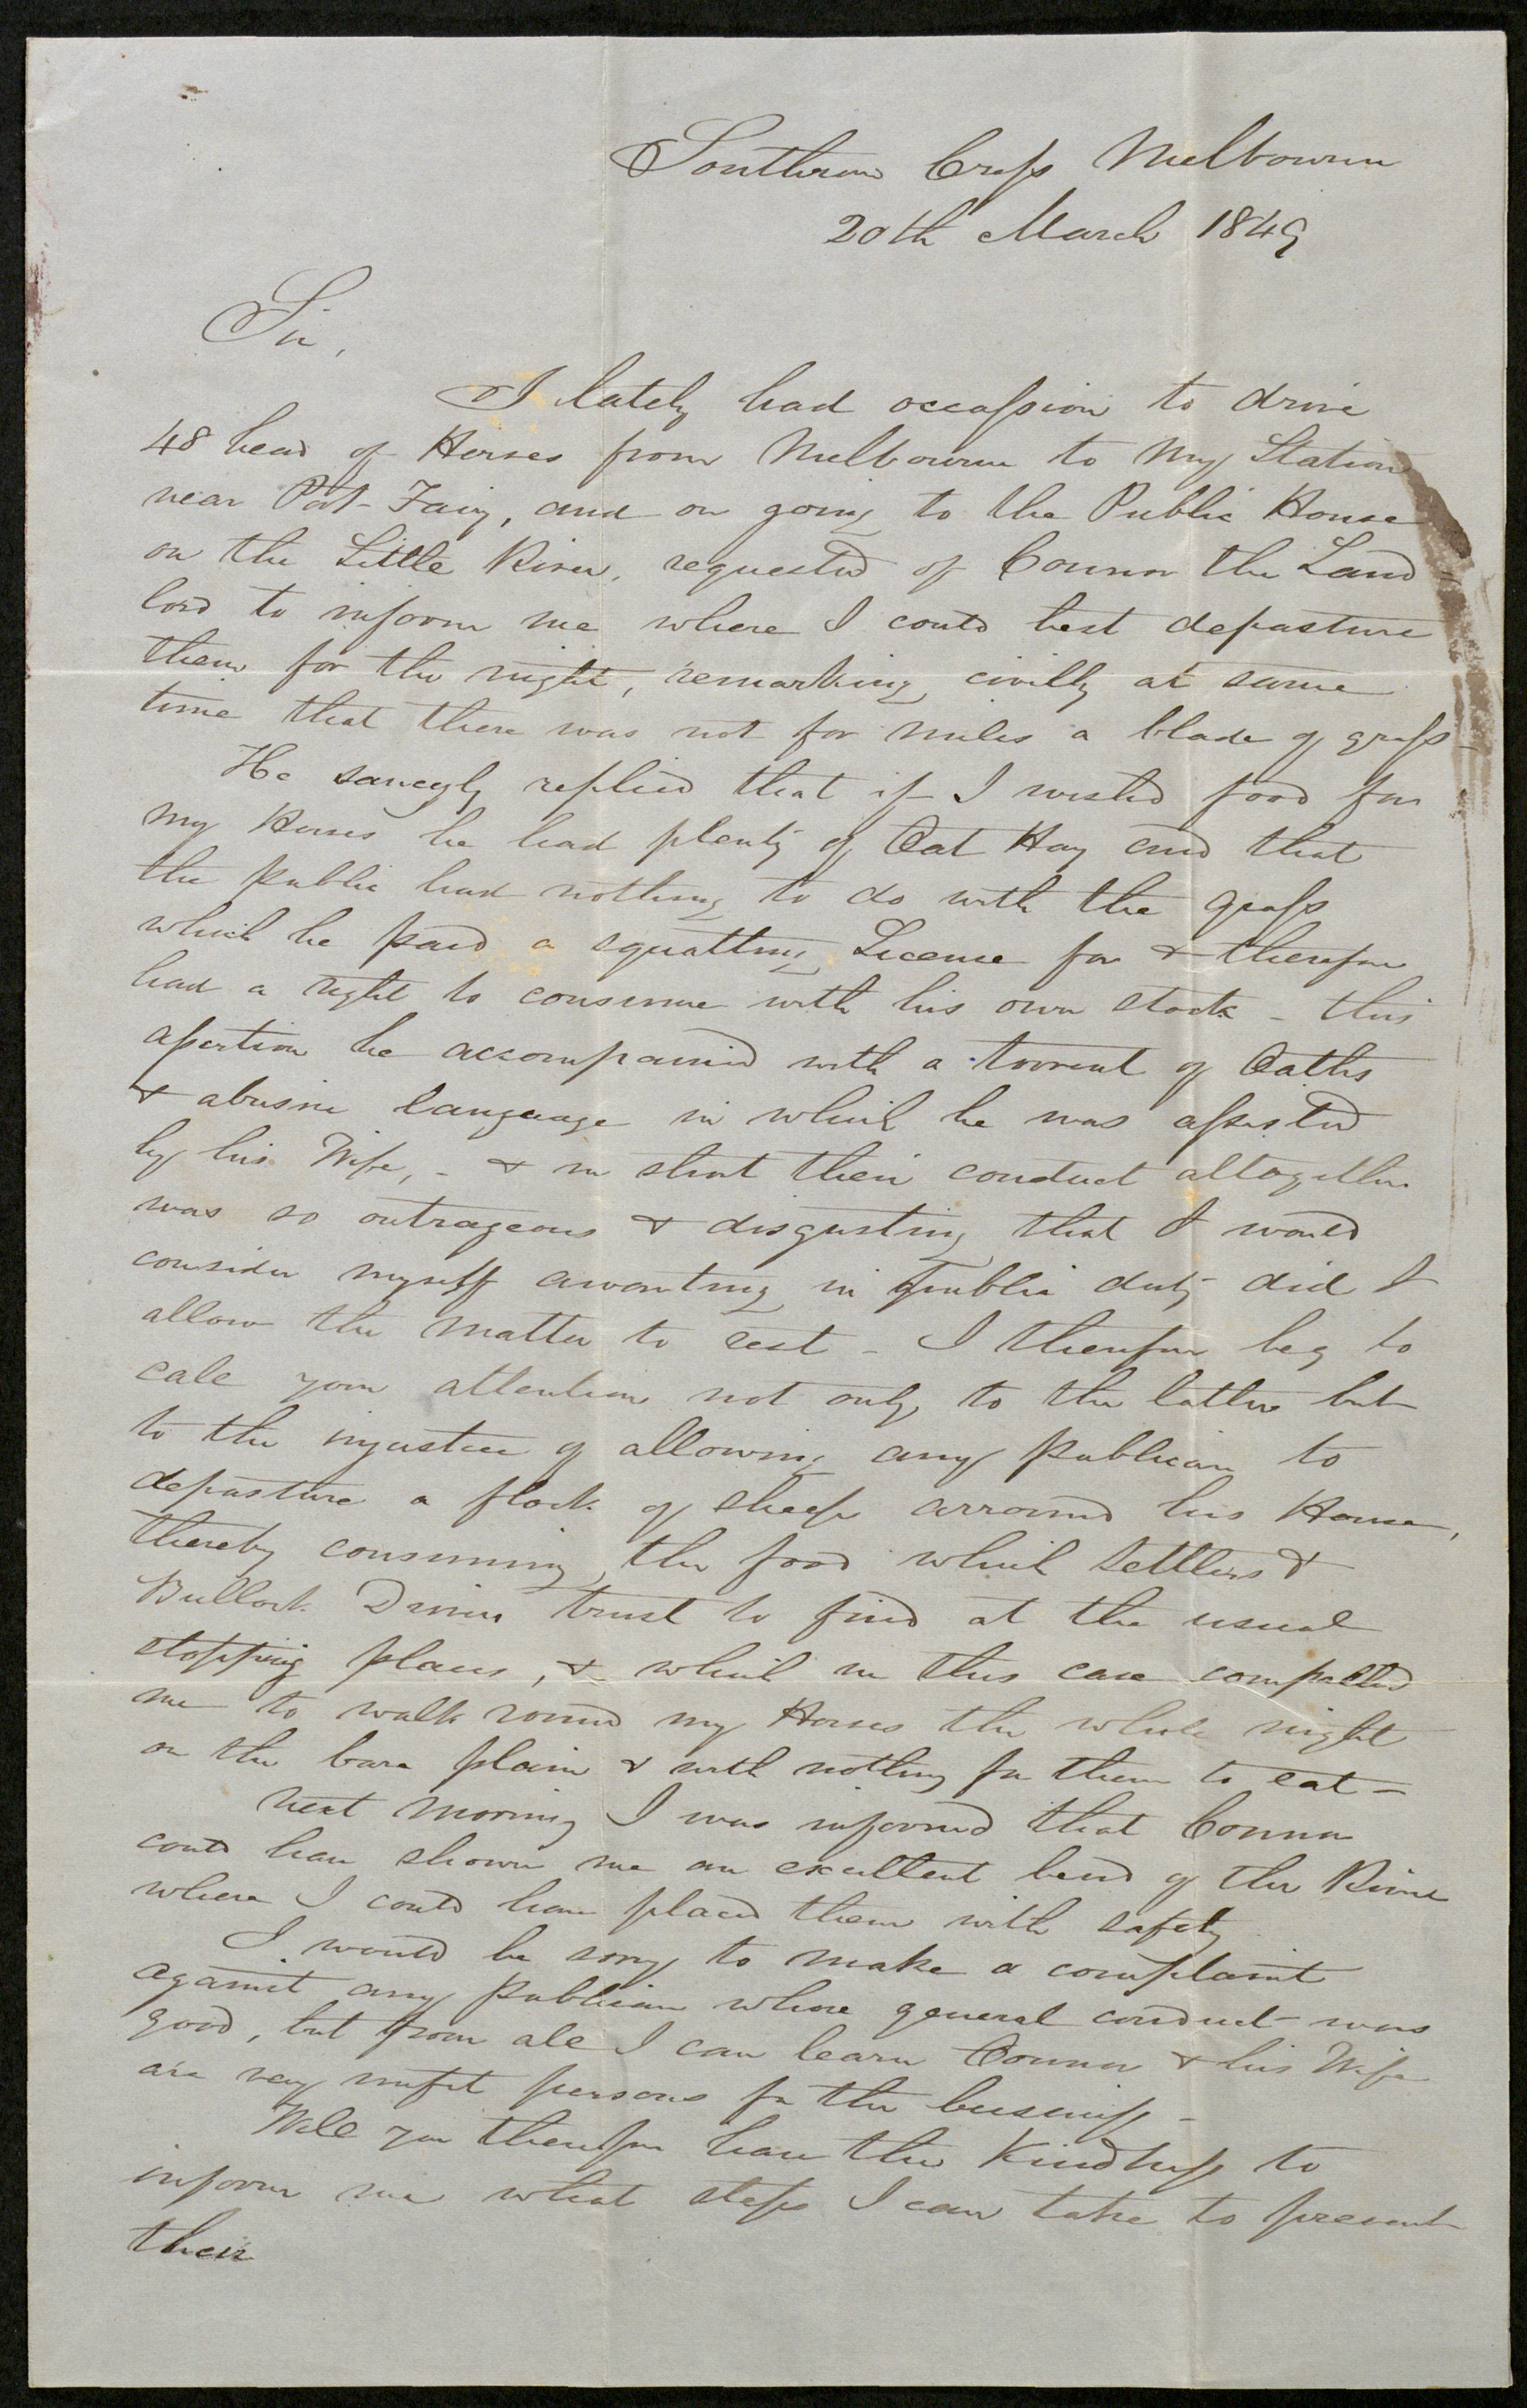 Southern Cross Melbourne
20th March 1849
Sir,
I lately had occassion to drive
48 head of Horses from Melbourne to my Station
near Port Fairy, and on going to the Public House
on the Little River, requested of Connor the Land-
lord to inform me where I could best depasture
them for the night, remarking civilly at same
time that there was not for miles a blade of grass -
He saucyly replied that if I wished food for
my Horses he had plenty of Oat Hay and that
the public had nothing to do with the grass
which he paid a squatting License for & therefore
had a right to consume with his own stock - this
assertion he accompanied with a torrent of Oaths
& abusive language in which he was assisted
by his Wife, - & in short their conduct altogether
was so outrageous & disgusting that I would
consider myself awanting in public duty did I
allow the matter to rest - I therefore beg to
call your attention not only to the latter but
to the injustice of allowing any publican to
depasture a flock of sheep arround his House,
thereby consuming the food which Settlers &
Bullock Drivers trust to find at the usual
stopping places, & which in this case compelled
me to walk round my Horses the whole night
on the bare plain & with nothing for them to eat -
next morning I was informed that Connor
could have shown me an excellent bend of the River
where I could have placed them with safety
I would be sorry to make a complaint
against any publican whose general conduct was
good, but from all I can learn Connor & his Wife
are very unfit persons for the business -
Will you therefore have the Kindness to
inform me what steps I can take to prevent
their